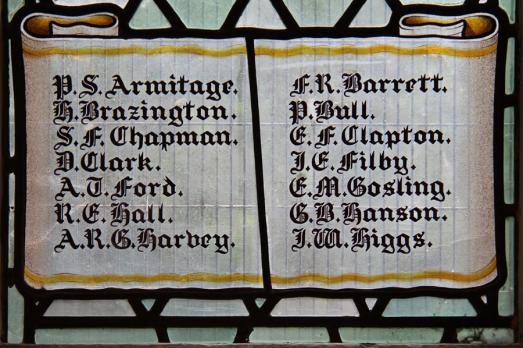 P.S. Armitage.
H. Brazington.
S.F. Chapman.
D. Clark.
A.T. Ford.
R.E. Hall.
A.R.G. Harvey.
F.R. Barrett.
P. Bull.
E.F. Clapton.
J.E. Filby.
E.M. Gosling.
G.B. Hanson.
J.W. Higgs.